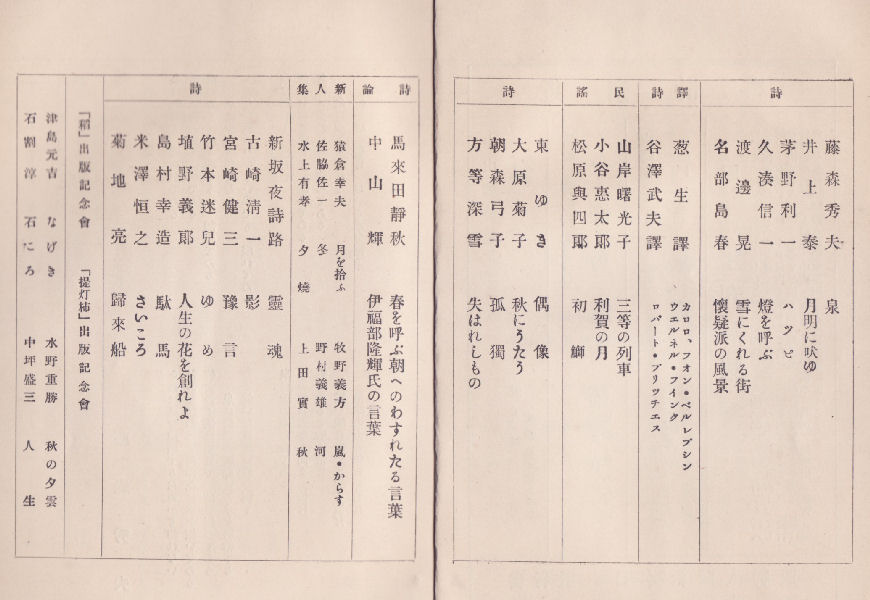 詩
藤森秀夫 泉
井上泰 月明に吠ゆ
茅野利一 ハツピ
久湊信一 燈を呼ぶ
渡邊晃 雪にくれる街
名部島春 懷疑派の風景
譯詩
葱生譯 カロロ、フオン・ベルレプシン
ウエルネル・フインク
谷澤武夫譯 ロバート・ブリツチエス
民謠
山岸曙光子 三等の列車
小谷惠太郎 利賀の月
松原與四郎 初鰤
詩
東ゆき 偶像
大原菊子 秋にうたう
朝森弓子 孤獨
方等深雪 失はれしもの
詩論
馬來田靜秋 春を呼ぶ朝へのわすれたる言葉
中山輝 伊福部隆輝氏の言葉
新人集
猿倉幸夫 月を拾ふ 牧野義方 嵐・からす
佐脇佐一 冬 野村義雄 河
水上有孝 夕燒 上田實 秋
詩
新坂夜詩路 靈魂
古崎淸一 影
宮崎健三 豫言
竹本迷兒 ゆめ
埴野義郎 人生の花を創れよ
島村幸造 駄馬
米澤恒之 さいころ
菊地亮 歸來船
「稻」出版記念會 「提灯柿」出版記念會
津島元吉 なげき 水野重勝 秋の夕雲
石割淳 石ころ 中坪盛三 人生